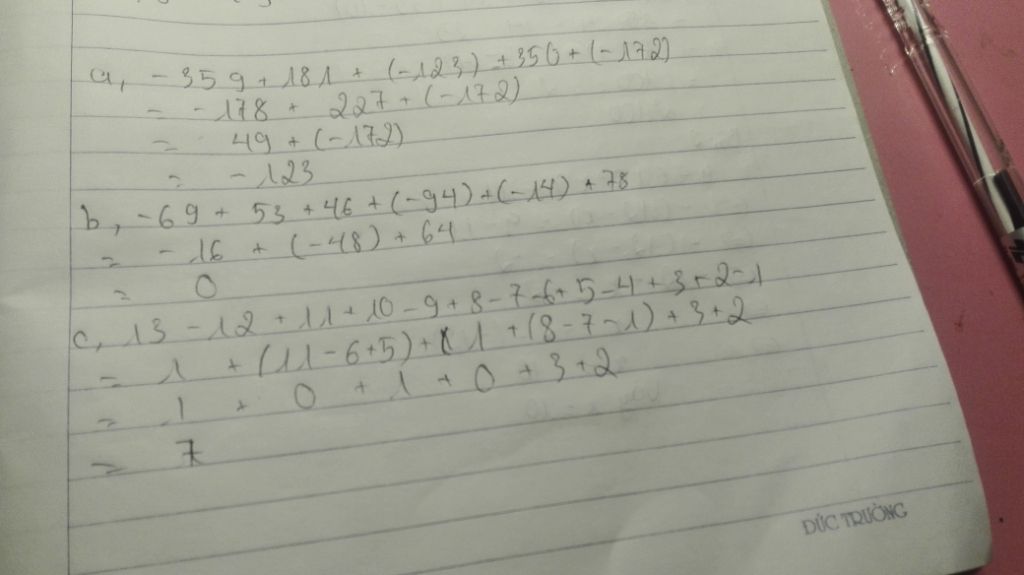 a, - 359 + 181 + (-123) + 350 + (-172)
= - 178 + 227 + (-172)
= 49 + (-172)
= - 123
b, - 69 + 53 + 46 + (-94) + (-14) + 78
= - 16 + (-48) + 64
= 0
c, 13 - 12 + 11 + 10 - 9 + 8 - 7 - 6 + 5 - 4 + 3 + 2 - 1
= 1 + (11 - 6 + 5) + 1 + (8 - 7 - 1) + 3 + 2
= 1 + 0 + 1 + 0 + 3 + 2
= 7
ĐỨC TRƯỜNG